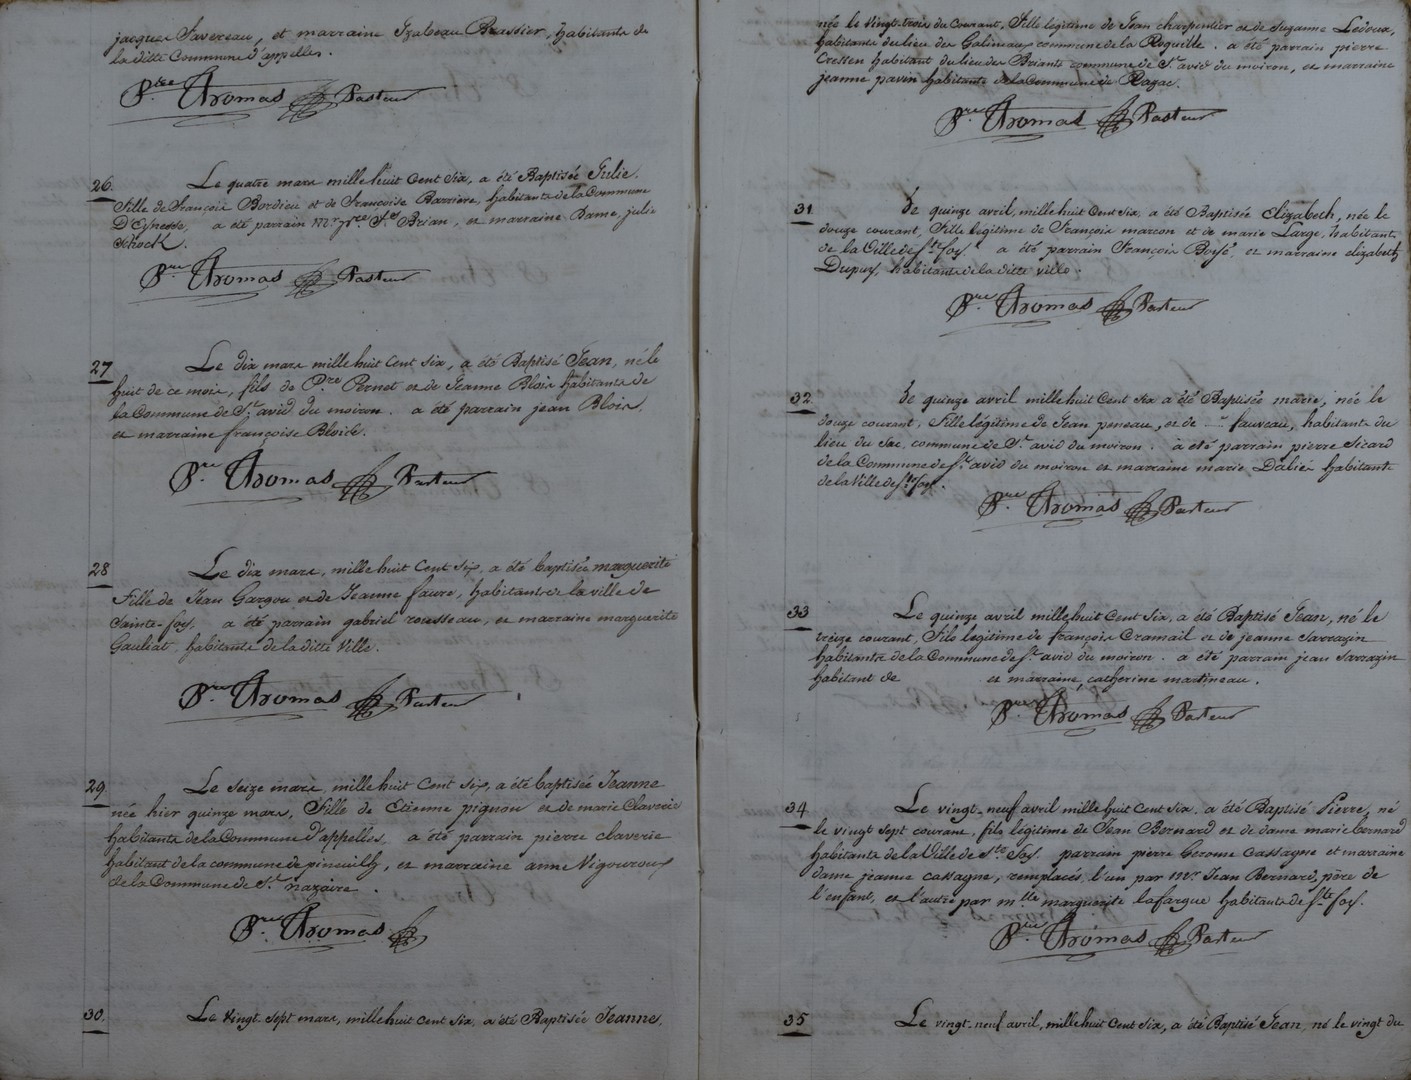 jacques Favereau, et marraine Izabeau Brassier, habitants de
la ditte Commune d'appelles.
Pre. Thomas Pasteur
26. Le quatre mars mille huit Cent Six, a été Baptisée Julie.
Fille de François Bordieu et de Françoise Barrière, habitants de la Commune
D'Eynesse, a été parrain Mr. Brian, et marraine Dame, julie
Schock.
Pre. Thomas Pasteur
27 Le dix mars mille huit Cent Six, a été Baptisé Jean, né le
huit de ce mois, fils de Pre. Pernet et de Jeanne Blois habitants de
la Commune de St. avid du moiron. a été parrain jean Blois,
et marraine françoise Blois.
Pre. Thomas Pasteur
28 Le dix mars, mille huit Cent Six, a été baptisée marguerite
Fille de Jean Gargou et de Jeanne faure, habitants de la ville de
Sainte-foy, a été parrain gabriel rousseau, et marraine marguerite
Gauliat, habitants de la ditte Ville.
Pre. Thomas Pasteur
29 Le Seize mars, mille huit Cent Six, a été baptisée Jeanne
née hier quinze mars, Fille de Etienne pignon et de marie Claverie
habitants de la Commune D'appelles, a été parrain pierre claverie
habitant de la commune de pineuilh, et marraine anne Vigouroux
de la Commune de St. nazaire.
Pre. Thomas
30. Le Vingt-Sept mars, mille huit Cent Six, a été Baptisée Jeanne,
née le Vingt-trois du Courant, Fille legitime de Jean charpentier et de Suzanne Ledoux,
habitants du lieu des Galineaux commune de la Roquille. a été parrain pierre
Cressen habitant du lieu des Briants commune de St. avid du moiron, et marraine
jeanne pavin habitante de la Commune de Ragac.
Pre. Thomas Pasteur
31 Le quinze avril, mille huit Cent Six, a été Baptisée Elizabeth, née le
douze courant, Fille legitime de François marcon et de marie Large, habitants
de la Ville de Ste. foy. a été parrain François Boisé, et marraine elizabeth
Dupuy, habitants de la ditte ville.
Pre. Thomas Pasteur
32 Le quinze avril mille huit Cent Six a été Baptisée marie, née le
douze courant, Fille légitime de Jean peneau, et de faureau, habitants du
lieu du Sac, commune de St. avid du moiron. a été parrain pierre Sicard
de la Commune de St. avid du moiron et marraine marie Dalié habitante
de la Ville de Ste. foy.
Pre. Thomas Pasteur
33 Le quinze avril mille huit Cent Six, a été Baptisé Jean, né le
treize courant, Fils legitime de françois Cramail et de jeanne Sarrazin
habitants de la Commune de St. avid du moiron. a été parrain jean Sarrazin
habitant de et marraine catherine martineau.
Pre. Thomas Pasteur
34 Le vingt-neuf avril mille huit Cent Six. a été Baptisé Pierre, né
le vingt Sept courant, fils légitime de Jean Bernard et de dame marie bernard
habitants de la Ville de Ste. Foy. parrain pierre Gerome Cassagne et marraine
dame jeanne Cassagne, remplacés l'un par Mr Jean Bernard, père de
l'enfant, et l'autre par melle marguerite lafargue habitants de Ste foy.
Pre. Thomas Pasteur
35 Le vingt-neuf avril, mille huit Cent Six, a été Baptisé Jean, né le vingt du